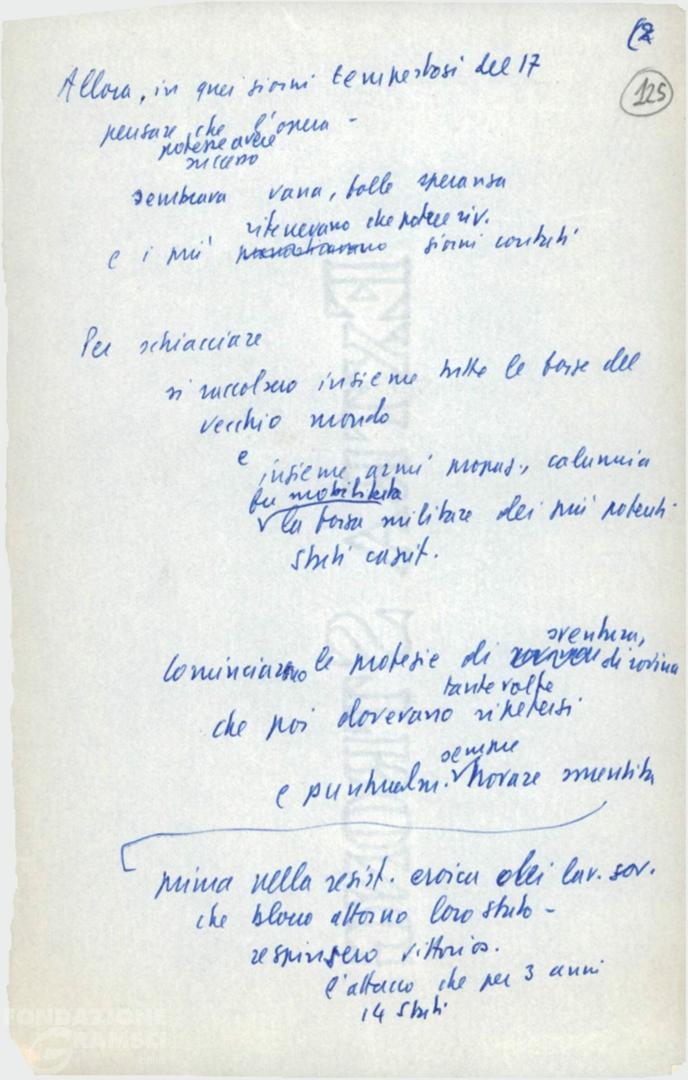 (2
125
Allora, in quei giorni tempestosi del 17
pensare che l'opera -
potesse avere
successo
sembrava vana, folle speranza
ritenevano che potere riv.
e i più giorni contati
Per schiacciare
si raccolsero insieme tutte le forze del
vecchio mondo
e insieme armi propag., calunnia
fu mobilitata
la forza militare dei più potenti
Stati capit.
sventura,
Cominciarono le profezie di di rovina
tante volte
che poi dovevano ripetersi
sempre
e puntualm. trovare smentita
prima nella resist. eroica dei lav. sov.
che blocco attorno loro stato -
respinsero vittorios.
l'attacco che per 3 anni
14 Stati
FONDAZIONE
GRAMSCI